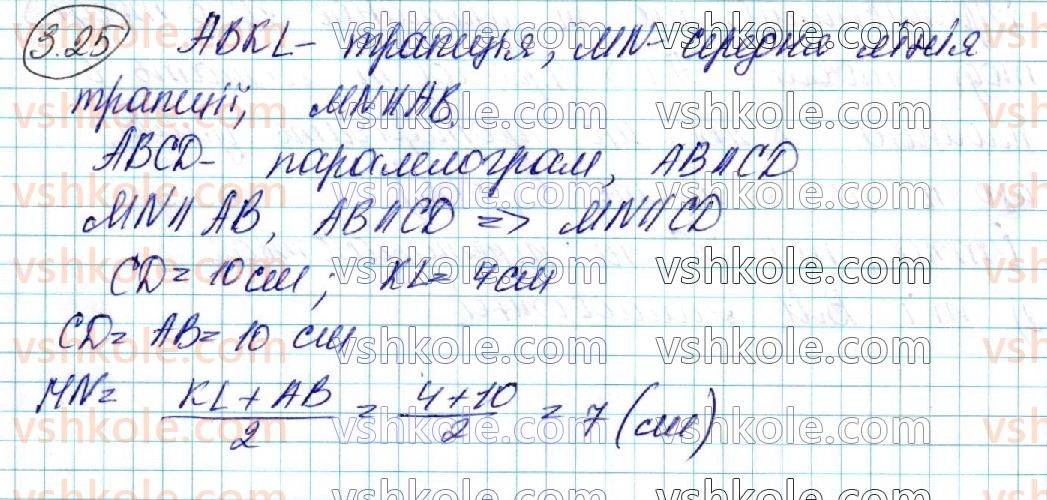 3.25 ABKL- трапеція, MN- середня лінія
трапеції, MN||AB,
ABCD- паралелограм, AB||CD
MN||AB, AB||CD => MN||CD
CD= 10 см; KL= 4 см
CD= AB= 10 см
MN= (KL+AB)/2 = (4+10)/2 = 7 (см)
vshkole.com